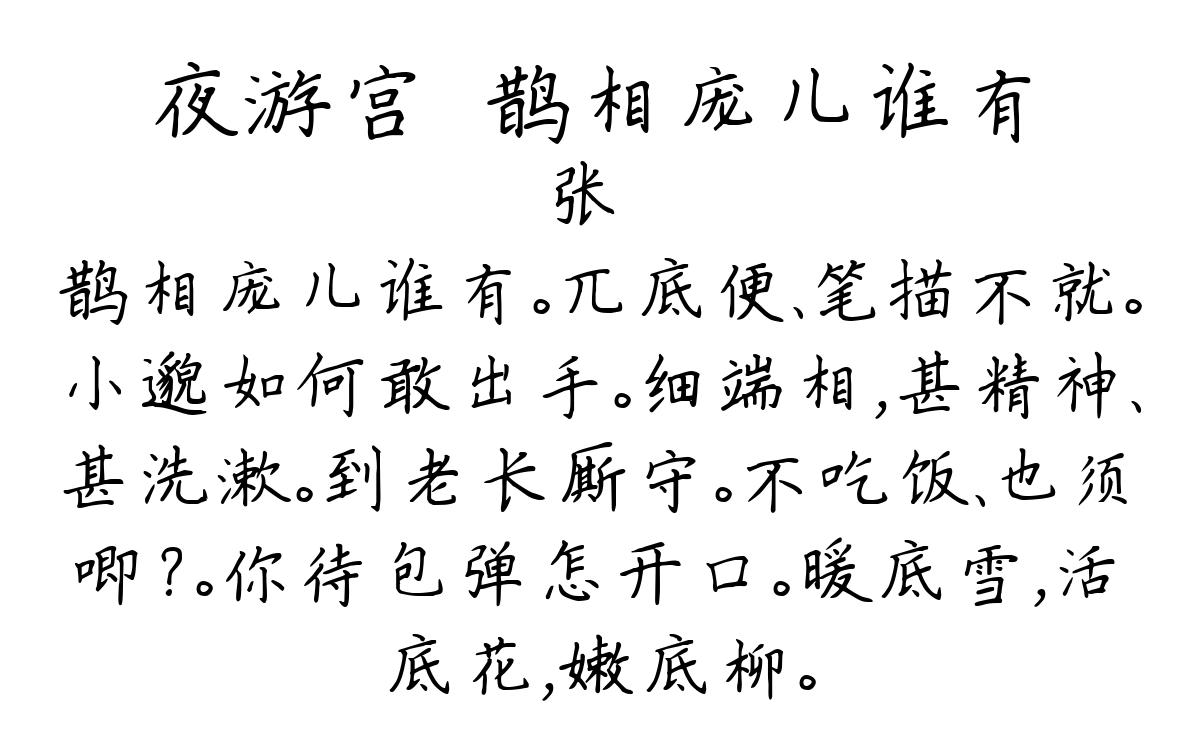 夜游宫 鹊相庞儿谁有
张
鹊相庞儿谁有。兀底便、笔描不就。
小邈如何敢出手。细端相,甚精神、
甚洗漱。到老长厮守。不吃饭、也须
唧?。你待包弹怎开口。暖底雪,活
底花,嫩底柳。